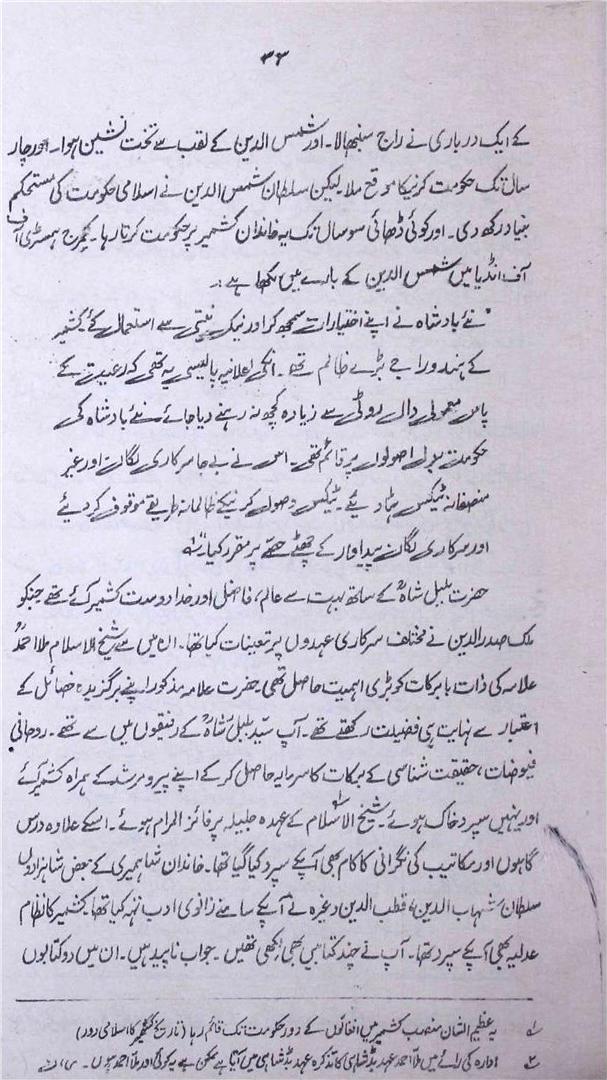 ۳۴
کے ایک درباری نے راج سنبھالا۔ اور شمس الدین کے لقب سے تخت نشین ہوا۔ اور چار
سال تک حکومت کرنیکا موقع ملا۔ لیکن سلطان شمس الدین نے اسلامی حکومت کی مستحکم
بنیاد رکھ دی۔ اور کوئی ڈھائی سو سال تک یہ خاندان کشمیر پر حکومت کرتا رہا۔ کیمبرج ہسٹری آف
آف انڈیا میں شمس الدین کے بارے میں لکھا ہے :۔
"نئے بادشاہ نے اپنے اختیارات سمجھ کر اور نیک نیتی سے استعمال کئے کشمیر
کے ہندو راجے بڑے ظالم تھے۔ انکی اعلانیہ پالیسی یہ تھی کہ رعیت کے
پاس معمولی دال روٹی سے زیادہ کچھ نہ رہنے دیا جائے نئے بادشاہ کی
حکومت عدل اصولوں پر قائم تھی۔ اس نے بے جا سرکاری لگان اور غیر
منصفانہ ٹیکس ہٹا دیئے۔ ٹیکس وصول کرنیکے ظالمانہ طریقے موقوف کر دئیے
اور سرکاری لگان پیداوار کے چھٹے حصے پر مقرر کیا۔"
حضرت بلبل شاہؒ کے ساتھ بہت سے عالم، فاضل اور خدا دوست کشمیر آئے تھے جنکو
ملک صدرالدین نے مختلف سرکاری عہدوں پر تعینات کیا تھا۔ ان میں سے شیخ الاسلام ملا احمدؒ
علامہ کی ذات با برکات کو بڑی اہمیت حاصل تھی۔ حضرت علامہ مذکور اپنے برگزیدہ خصائل کے
اعتبار سے نہایت ہی فضیلت رکھتے تھے۔ آپ سید بلبل شاہؒ کے رفیقوں میں سے تھے۔ روحانی
فیوضات، حقیقت شناسی کے برکات کا سرمایہ حاصل کر کے اپنے پیر و مرشد کے ہمراہ کشمیر آئے
اور یہیں سپرد خاک ہوئے۔ شیخ الاسلام ؎۱ کے عہدہ جلیلہ پر فائز المرام ہوئے۔ اسکے علاوہ درس
گاہوں اور مکاتیب کی نگرانی کا کام بھی آپکے سپرد کیا گیا تھا۔ خاندان شاہمیری کے بعض شاہزادوں
سلطان شہاب الدین، قطب الدین وغیرہ نے آپکے سامنے زانوی ادب تہہ کیا تھا۔ کشمیر کا نظام
عدلیہ بھی آپکے سپرد تھا۔ آپ نے چند کتابیں بھی لکھی تھیں۔ جواب ناپید ہیں۔ ان میں دو کتابوں
؎۱ یہ عظیم الشان منصب کشمیر میں افغانوں کے دور حکومت تک قائم رہا (تاریخ کشمیر کا اسلامی دور)
؎۲ ادارہ کی رائے میں ملا احمد عہد بڈشاہی کا تذکرہ عہد بڈشاہی میں آیا ہے ممکن ہے یہ کوئی اور ملا احمد ہوں۔